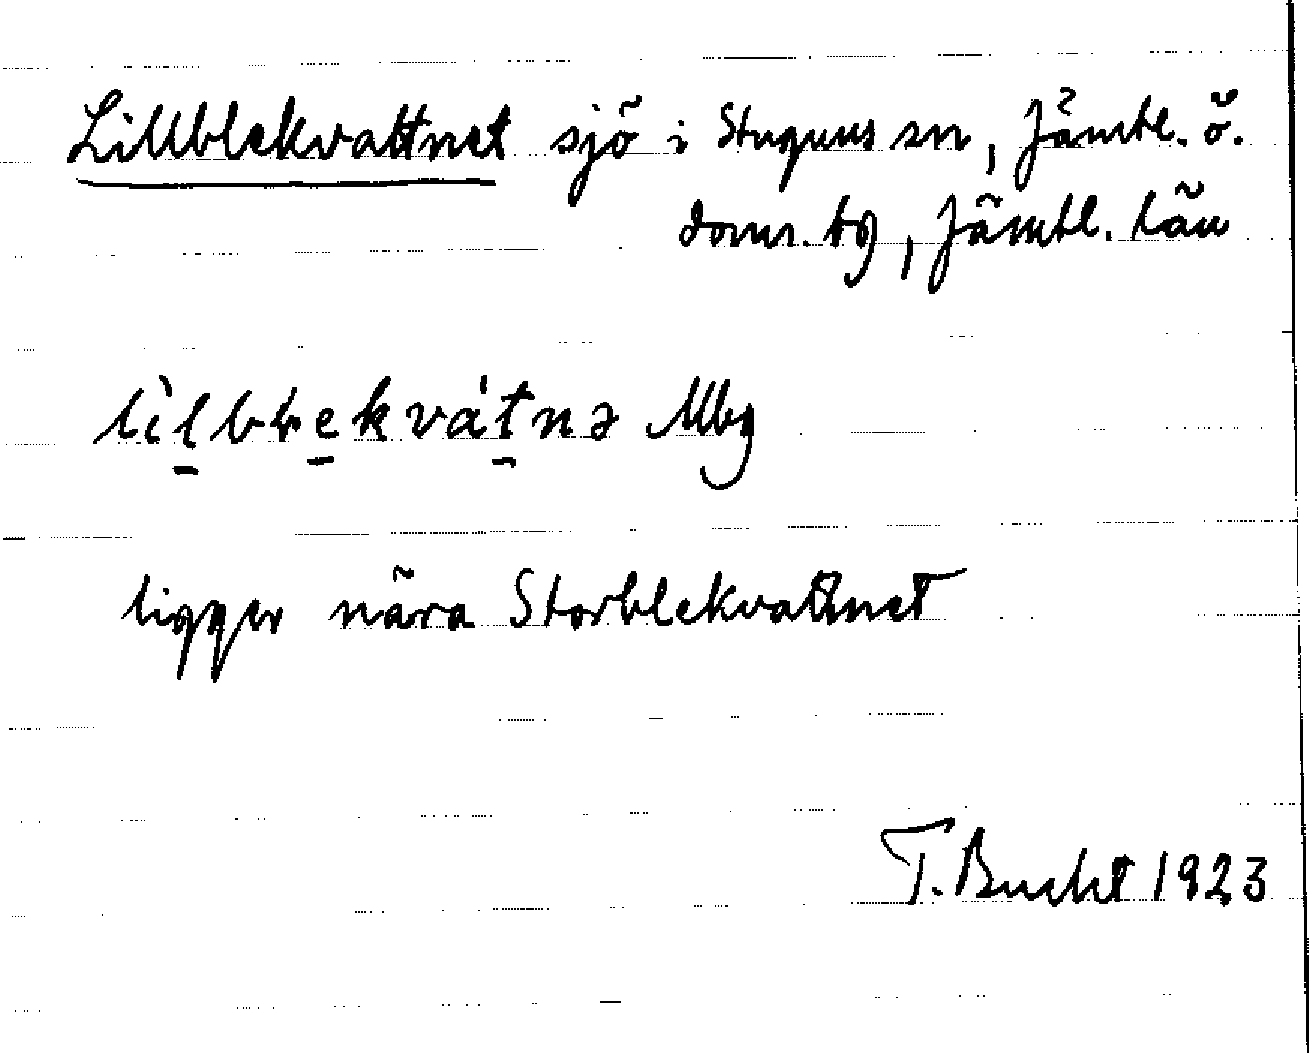 Lillblekvattnet sjö i Stuguns sn, Jämtl. ö.
doms. tg, Jämtl. län
ligger nära Storblekvattnet
T. Bucht 1923